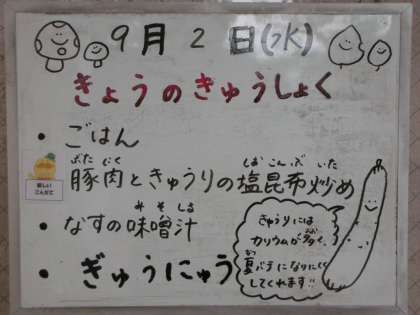 9月2日(水)
きょうのきゅうしょく
・ごはん
ぶた にく しお こん ぶ いた
・豚肉ときゅうりの塩昆布炒め
み そ しる
・なすの味噌汁
・ぎゅうにゅう
新しい
こんだて
きゅうりには
カリウムが多く、
夏バテになりにく
してくれます!!